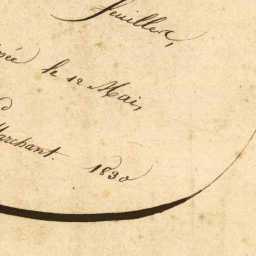 feuillea,
le 12 Mai,
Marchant. 1830